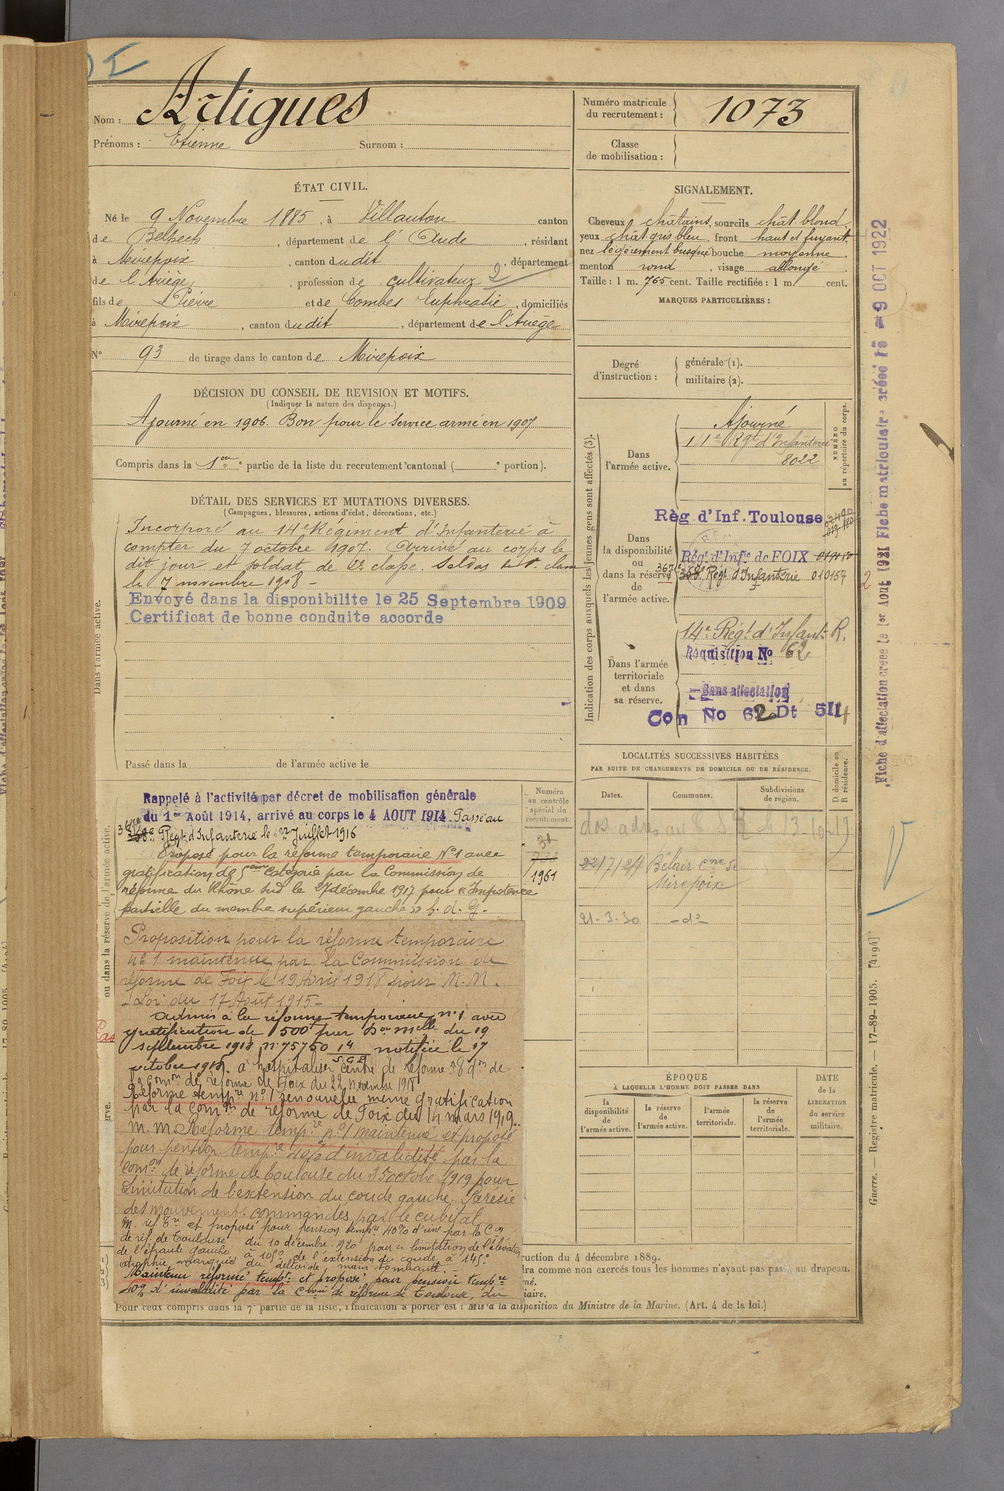 Nom : Artigues
Prénoms : Etienne Surnom :
Numéro matricule du recrutement : 1073
Classe de mobilisation :
ÉTAT CIVIL.
Né le 9 Novembre 1885, à Villautou canton
de Belpech, département de l'Aude, résidant
à Mirepoix, canton dudit, département
de l'Ariège, profession de cultivateur 2
fils de Pierre et de Combes Euphrasie, domiciliés
à Mirepoix, canton dudit, département de l'Ariège
N° 93 de tirage dans le canton de Mirepoix
SIGNALEMENT.
Cheveux châtains, sourcils chât. blond
yeux chât gris bleu, front haut et fuyant,
nez légèrement busqué bouche moyenne
menton rond, visage allongé.
Taille : 1 m. 765 cent. Taille rectifiée : 1 m. cent.
MARQUES PARTICULIÈRES :
Degré d'instruction :
générale (1).
militaire (2).
DÉCISION DU CONSEIL DE REVISION ET MOTIFS.
(Indiquer la nature des dispenses.)
Ajourné en 1906. Bon pour le Service armé en 1907
Compris dans la 1ere partie de la liste du recrutement cantonal ( e portion).
DÉTAIL DES SERVICES ET MUTATIONS DIVERSES.
(Campagnes, blessures, actions d'éclat, décorations, etc.)
Dans l'armée active.
Incorporé au 14e Régiment d'Infanterie à
compter du 7 octobre 1907. Arrivé au corps le
dit jour et soldat de 2e classe. Soldat de 1e classe
le 7 novembre 1908 -
Envoyé dans la disponibilite le 25 Septembre 1909
Certificat de bonne conduite accorde
Passé dans la de l'armée active le
Indication des corps auxquels les jeunes gens sont affectés (3).
NUMÉRO au répertoire du corps.
Dans l'armée active.
Ajourné
14e Régt d'Infanterie
8022
Dans la disponibilité ou dans la réserve de l'armée active.
Règ d'Inf. Toulouse
Régt d'Infie de FOIX
Régt d'Infanterie 010154
Dans l'armée territoriale et dans sa réserve.
14e Régt d'Infant. R.
Réquisition No 62
Sans affectation
Con No 62 Dt 511
Fiche d'affectation créée le 1er Aout 1921 Fiche matriculaire créée le 9 OCT 1922
ou dans la réserve de l'armée active.
Rappelé à l'activité par décret de mobilisation générale
du 1er Août 1914, arrivé au corps le 4 AOUT 1914. Passé au
Régt d'Infanterie le 1er Juillet 1916
Proposé pour la réforme temporaire N°1 avec
gratification de 5eme Catégorie par la Commission de
réforme du Rhône Sud le 27 décembre 1917 pour "Impotence
partielle du membre supérieur gauche" b. d. g.
Numéro au contrôle spécial du recrutement.
1961
Proposition pour la réforme temporaire
N°1 maintenue par la Commission de
réforme de Foix le 19 Avril 1918 pour M.M.
- Loi du 17 Août 1915 -
Admis à la réforme temporaire n°1 avec
gratification de 500f par Don mlle du 19
septembre 1918 n° 75750 notifiée le 17
octobre 1918. à hospitaliser centre de réforme
Comon de réforme de Foix du 22 novembre 1918
Réforme tempre n°1 renouvelée même gratification
par la Comon de réforme de Foix du 14 mars 1919
M.M. Réforme tempre n°1 maintenue et proposé
pour pension tempre 40% d'invalidité par la
Comon de réforme de Toulouse du 25 octobre 1919 pour
Limitation de l'extension du coude gauche. Parésie
des mouvements commandés par le cubital
M. réf tre et proposé pour pension tempre 40% d'inv par la Con
de réf. de Toulouse du 10 décembre 1920 pour limitation de l'élévation
de l'épaule gauche à 105°, de l'extension du coude à 145°
atrophie marquée du deltoïde, main tombante
Maintenu réformé tempre et proposé pour pension tempre
40% d'invalidité par la Comon de réforme de Toulouse, du
LOCALITÉS SUCCESSIVES HABITÉES
PAR SUITE DE CHANGEMENTS DE DOMICILE OU DE RÉSIDENCE.
Dates. Communes. Subdivisions de région. D domicile ou R résidence.
22/7/24 Bélair cne de
Mirepoix
21-3-30 - do
ÉPOQUE
À LAQUELLE L'HOMME DOIT PASSER DANS
la disponibilité de l'armée active.
la réserve de l'armée active.
l'armée territoriale.
la réserve de l'armée territoriale.
DATE de la LIBÉRATION du service militaire.
ruction du 4 décembre 1889.
tra comme non exercés tous les hommes n'ayant pas passé au drapeau.
mé.
iaire.
Pour ceux compris dans la 7e partie de la liste, l'indication à porter est : Mis à la disposition du Ministre de la Marine. (Art. 4 de la loi.)
Guerre. — Registre matricule. — 17-89-1905. [4194]